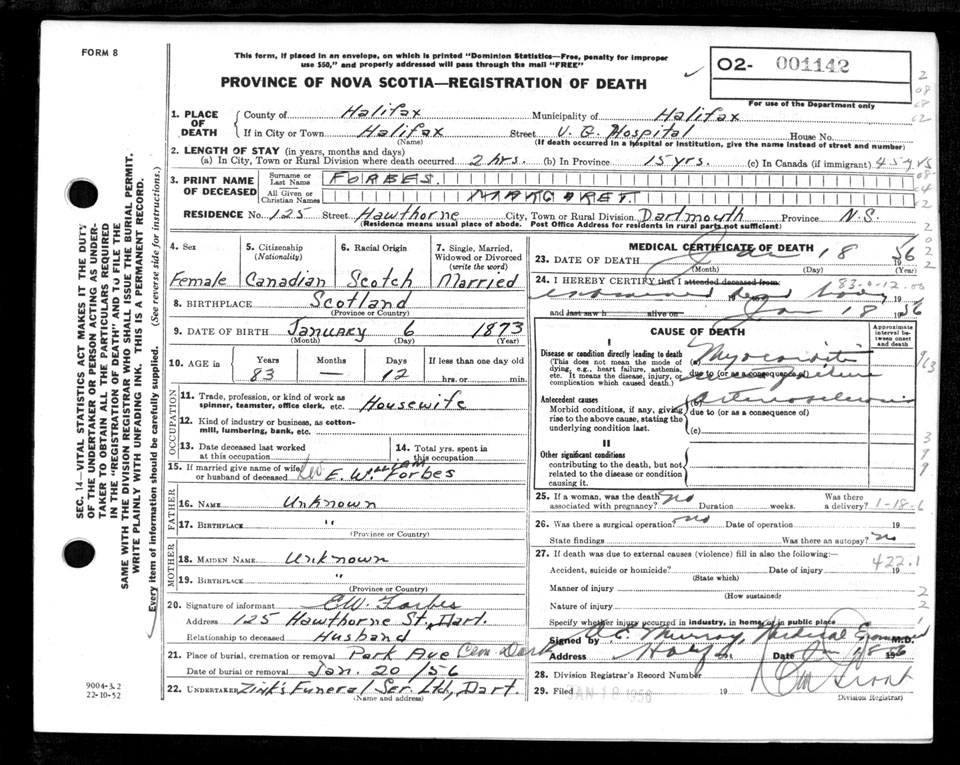 FORM 8
This form, if placed in an envelope, on which is printed "Dominion Statistics—Free, penalty for improper
use $50," and properly addressed will pass through the mail "FREE"
PROVINCE OF NOVA SCOTIA—REGISTRATION OF DEATH
02- 001142
For use of the Department only
1. PLACE OF DEATH
County of Halifax Municipality of Halifax
If in City or Town Halifax Street V. G. Hospital House No.
(Name) (If death occurred in a hospital or institution, give the name instead of street and number)
2. LENGTH OF STAY (in years, months and days)
(a) In City, Town or Rural Division where death occurred 2 hrs. (b) In Province 15 yrs. (c) In Canada (if immigrant) 45 yrs
3. PRINT NAME OF DECEASED
Surname or Last Name FORBES.
All Given or Christian Names MARGARET.
RESIDENCE No. 125 Street Hawthorne City, Town or Rural Division Dartmouth Province N.S.
(Residence means usual place of abode. Post Office Address for residents in rural parts not sufficient)
4. Sex
Female
5. Citizenship (Nationality)
Canadian
6. Racial Origin
Scotch
7. Single, Married, Widowed or Divorced (write the word)
Married
8. BIRTHPLACE Scotland
(Province or Country)
9. DATE OF BIRTH January 6 1873
(Month) (Day) (Year)
10. AGE in Years Months Days If less than one day old
83 — 12 hrs. or min.
OCCUPATION
11. Trade, profession, or kind of work as spinner, teamster, office clerk, etc. Housewife
12. Kind of industry or business, as cotton-mill, lumbering, bank, etc.
13. Date deceased last worked at this occupation
14. Total yrs. spent in this occupation
15. If married give name of wife or husband of deceased E. William Forbes
FATHER
16. NAME Unknown
17. BIRTHPLACE "
(Province or Country)
MOTHER
18. MAIDEN NAME Unknown
19. BIRTHPLACE "
(Province or Country)
20. Signature of informant E.W. Forbes
Address 125 Hawthorne St, Dart.
Relationship to deceased Husband
21. Place of burial, cremation or removal Park Ave Cem Dart
Date of burial or removal Jan. 20/56
22. UNDERTAKER Zink's Funeral Ser. Ltd, Dart.
(Name and address)
MEDICAL CERTIFICATE OF DEATH
23. DATE OF DEATH Jan 18 1956
(Month) (Day) (Year)
83-0-12.00
24. I HEREBY CERTIFY that I attended deceased from:
examined dead body 19
and last saw h alive on Jan 18 1956
CAUSE OF DEATH
Approximate interval between onset and death
I
Disease or condition directly leading to death
(This does not mean the mode of dying, e.g., heart failure, asthenia, etc. It means the disease, injury, or complication which caused death.)
Myocarditis
due to (or as a consequence of)
Antecedent causes
Morbid conditions, if any, giving rise to the above cause, stating the underlying condition last.
Arteriosclerosis
due to (or as a consequence of)
(c)
II
Other significant conditions
contributing to the death, but not related to the disease or condition causing it.
25. If a woman, was the death associated with pregnancy? no Duration weeks. Was there a delivery?
1-18-6
26. Was there a surgical operation? no Date of operation 19
State findings Was there an autopsy? no
27. If death was due to external causes (violence) fill in also the following:—
422.1
Accident, suicide or homicide? Date of injury 19
(State which)
Manner of injury
(How sustained)
Nature of injury
Specify whether injury occurred in industry, in home or in public place
Signed by Murray, Medical Examiner M.D.
Address Halifax Date Jan 18 56
28. Division Registrar's Record Number
29. Filed JAN 18 1956 19
Division Registrar)
SEC. 14—VITAL STATISTICS ACT MAKES IT THE DUTY
OF THE UNDERTAKER OR PERSON ACTING AS UNDER-
TAKER TO OBTAIN ALL THE PARTICULARS REQUIRED
IN THE "REGISTRATION OF DEATH" AND TO FILE THE
SAME WITH THE DIVISION REGISTRAR WHO SHALL ISSUE THE BURIAL PERMIT.
WRITE PLAINLY WITH UNFADING INK. THIS IS A PERMANENT RECORD.
Every item of information should be carefully supplied. (See reverse side for instructions.)
9004-3.2
22-10-52